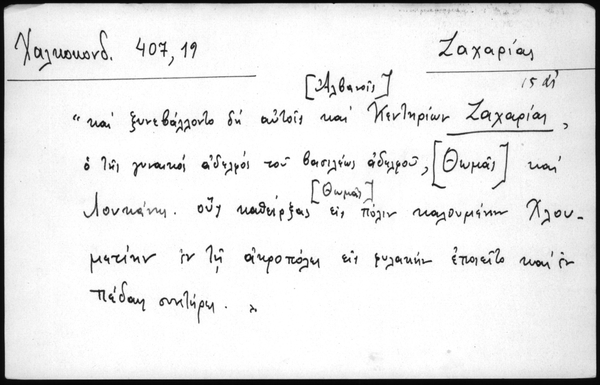 Χαλκοκονδ. 407,19
Ζαχαρίας
15 αἰ
[Ἀλβανοῖς]
"καὶ ξυνεβάλλοντο δὴ αὐτοῖς καὶ Κεντηρίων Ζαχαρίας,
ὁ τῆς γυναικὸς ἀδελφὸς τοῦ βασιλέως ἀδελφοῦ, [Θωμᾶς] καὶ
[Θωμᾶς]
Λουκάνης. οὓς καθείρξας εἰς πόλιν καλουμένην Χλου-
ματίην ἐν τῇ ἀκροπόλει εἰς φυλακὴν ἐποιεῖτο καὶ ἐν
πέδαις συνετήρει. »